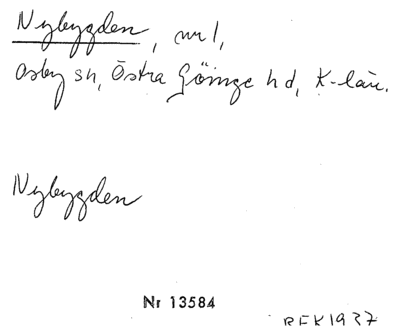 Nybygden, nr 1,
Osby sn, Östra Göinge hd, K-län.
Nybygden
Nr 13584
REK1937